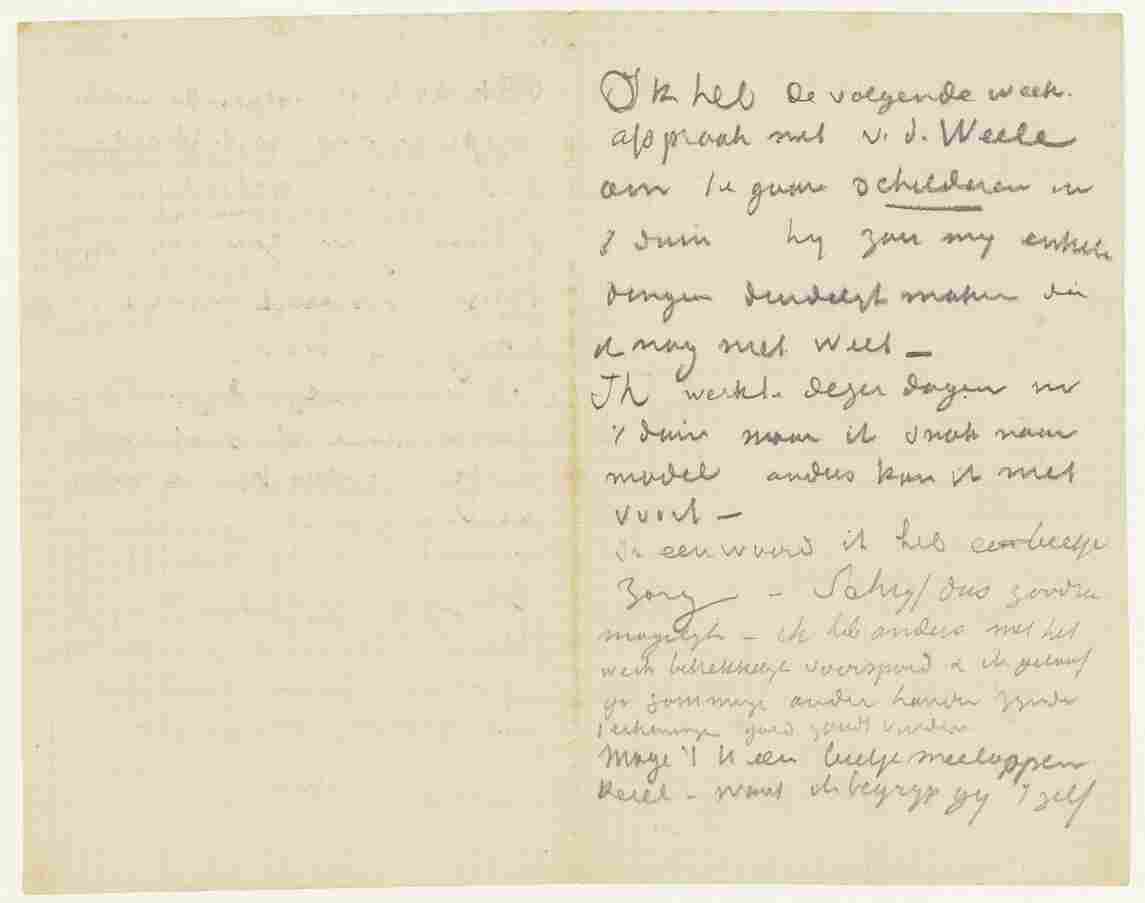 Ik heb de volgende week
afspraak met v. d. Weele
om te gaan schilderen in
't duin hy zou my enkele
dingen duidelyk maken die
ik nog niet weet —
Ik werkte dezer dagen in
't duin maar ik snak naar
model anders kan ik niet
voort —
In een woord ik heb een beetje
zorg — Schryf dus zoodra
mogelyk — ik heb anders met het
werk betrekkelyk voorspoed & ik geloof
ge sommige onder handen zynde
teekeningen goed zoudt vinden
Moge 't U een beetje meeloopen
kerel — want ik begryp gy 't zelf